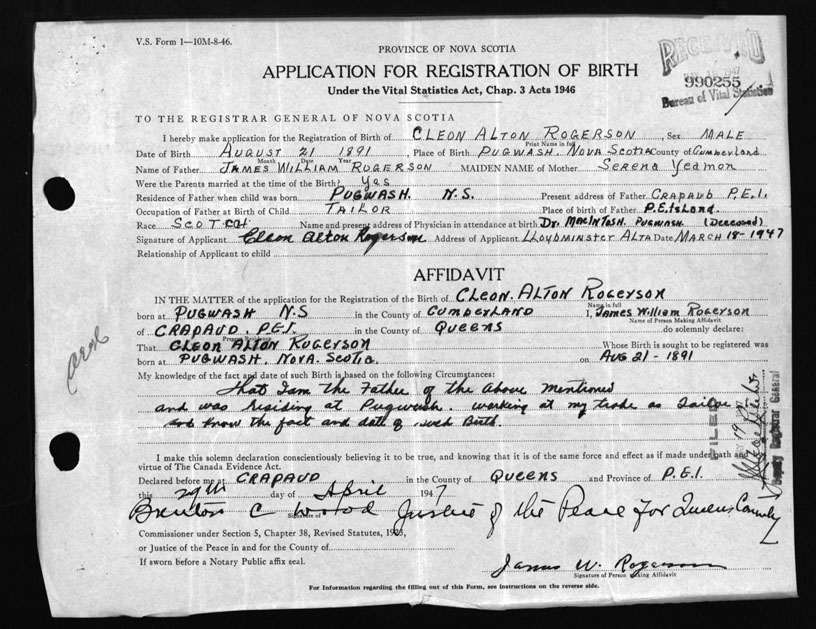 V.S. Form 1—10M-8-46.
PROVINCE OF NOVA SCOTIA
RECEIVED
1947
990255
Bureau of Vital Statistics
APPLICATION FOR REGISTRATION OF BIRTH
Under the Vital Statistics Act, Chap. 3 Acts 1946
TO THE REGISTRAR GENERAL OF NOVA SCOTIA
I hereby make application for the Registration of Birth of CLEON ALTON ROGERSON, Sex MALE
Print Name in full
Date of Birth AUGUST 21 1891, Place of Birth PUGWASH. NOVA SCOTIA County of Cumberland
Month Date Year
Name of Father JAMES WILLIAM ROGERSON MAIDEN NAME of Mother Serena Yeamon
Were the Parents married at the time of the Birth? Yes
Residence of Father when child was born PUGWASH. N.S. Present address of Father CRAPAUD P.E.I.
Occupation of Father at Birth of Child TAILOR Place of birth of Father P.E.Island.
Race SCOTCH Name and present address of Physician in attendance at birth Dr. MacINTOSH. PUGWASH. (Deceased)
Signature of Applicant Cleon Alton Rogerson Address of Applicant LLOYDMINSTER ALTA Date MARCH 18-1947
Relationship of Applicant to child
AFFIDAVIT
IN THE MATTER of the application for the Registration of the Birth of CLEON. ALTON ROGERSON
Name in full
born at PUGWASH N.S in the County of CUMBERLAND I, James William Rogerson
Name of Person Making Affidavit
of CRAPAUD. P.E.I. in the County of QUEENS do solemnly declare:
Present Residence
That CLEON ALTON ROGERSON Whose Birth is sought to be registered was
born at PUGWASH. NOVA. SCOTIA. on AUG 21 - 1891
My knowledge of the fact and date of such Birth is based on the following Circumstances:
that I am the Father of the Above mentioned
and was residing at Pugwash. working at my trade as Tailor
and know the fact and date of such Birth.
FILED
Deputy Registrar General
I make this solemn declaration conscientiously believing it to be true, and knowing that it is of the same force and effect as if made under oath and
virtue of The Canada Evidence Act.
Declared before me at CRAPAUD in the County of QUEENS and Province of P.E.I.
this 29th day of April 1947
Brenton C Wood Justice of the Peace for Queens County
Signature of
Commissioner under Section 5, Chapter 38, Revised Statutes, 1923,
or Justice of the Peace in and for the County of
If sworn before a Notary Public affix seal.
James W. Rogerson
Signature of Person making Affidavit
For Information regarding the filling out of this Form, see instructions on the reverse side.